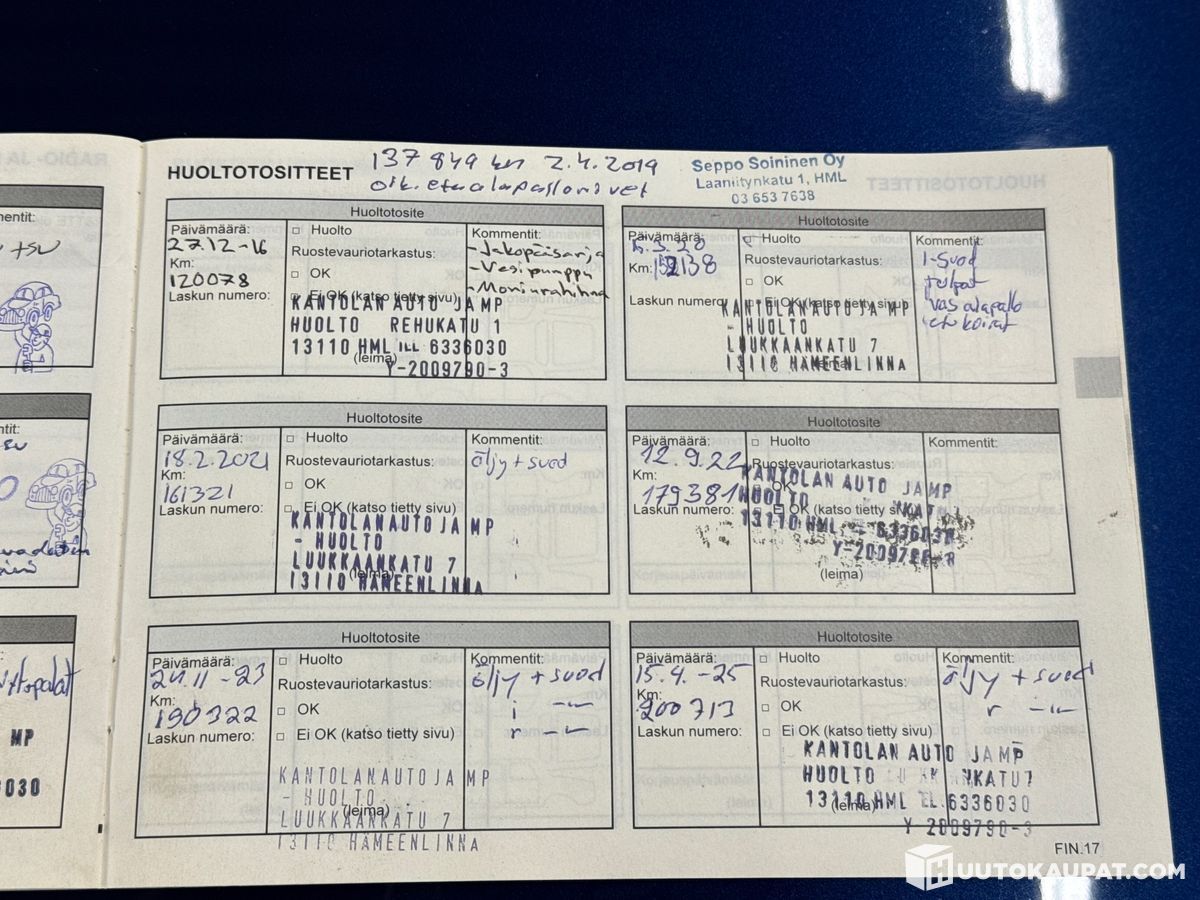 HUOLTOTOSITTEET
137 849 km 2.4.2019
oik. etualapallonivel
Seppo Soininen Oy
Laaniitynkatu 1, HML
03 653 7638
Huoltotosite
Päivämäärä:
27.12-16
Km:
120078
Laskun numero:
Huolto
Ruostevauriotarkastus:
OK
Ei OK (katso tietty sivu)
KANTOLAN AUTO JA MP
HUOLTO REHUKATU 1
13110 HML 6336030
(leima)
Y-2009790-3
Kommentit:
-Jakopäisarja
-Vesipumppu
-Moniurahihna
Huoltotosite
Päivämäärä:
Km:
Laskun numero:
Huolto
Ruostevauriotarkastus:
OK
Ei OK (katso tietty sivu)
KANTOLAN AUTO JA MP
- HUOLTO
LUUKKAANKATU 7
13110 HÄMEENLINNA
Kommentit:
i-suod
tulpat
vas alapallo
etu koirat
Huoltotosite
Päivämäärä:
18.2.2021
Km:
161321
Laskun numero:
Huolto
Ruostevauriotarkastus:
OK
Ei OK (katso tietty sivu)
KANTOLAN AUTO JA MP
- HUOLTO
LUUKKAANKATU 7
(leima)
13110 HÄMEENLINNA
Kommentit:
öljy + suod
Huoltotosite
Päivämäärä:
12.9.22
Km:
179381
Laskun numero:
Huolto
Ruostevauriotarkastus:
OK
Ei OK (katso tietty sivu)
KANTOLAN AUTO JA MP
HUOLTO
13110 HML 6336030
(leima)
Kommentit:
Huoltotosite
Päivämäärä:
24.11-23
Km:
190322
Laskun numero:
Huolto
Ruostevauriotarkastus:
OK
Ei OK (katso tietty sivu)
KANTOLAN AUTO JA MP
- HUOLTO
(leima)
LUUKKAANKATU 7
13110 HÄMEENLINNA
Kommentit:
öljy + suod
i -"-
r -"-
Huoltotosite
Päivämäärä:
15.4.-25
Km:
200713
Laskun numero:
Huolto
Ruostevauriotarkastus:
OK
Ei OK (katso tietty sivu)
KANTOLAN AUTO JA MP
HUOLTO LUUKKAANKATU 7
13110 HML EL.6336030
(leima)
Y 2009790-3
Kommentit:
öljy + suod
r -"-
FIN.17
HUUTOKAUPAT.COM